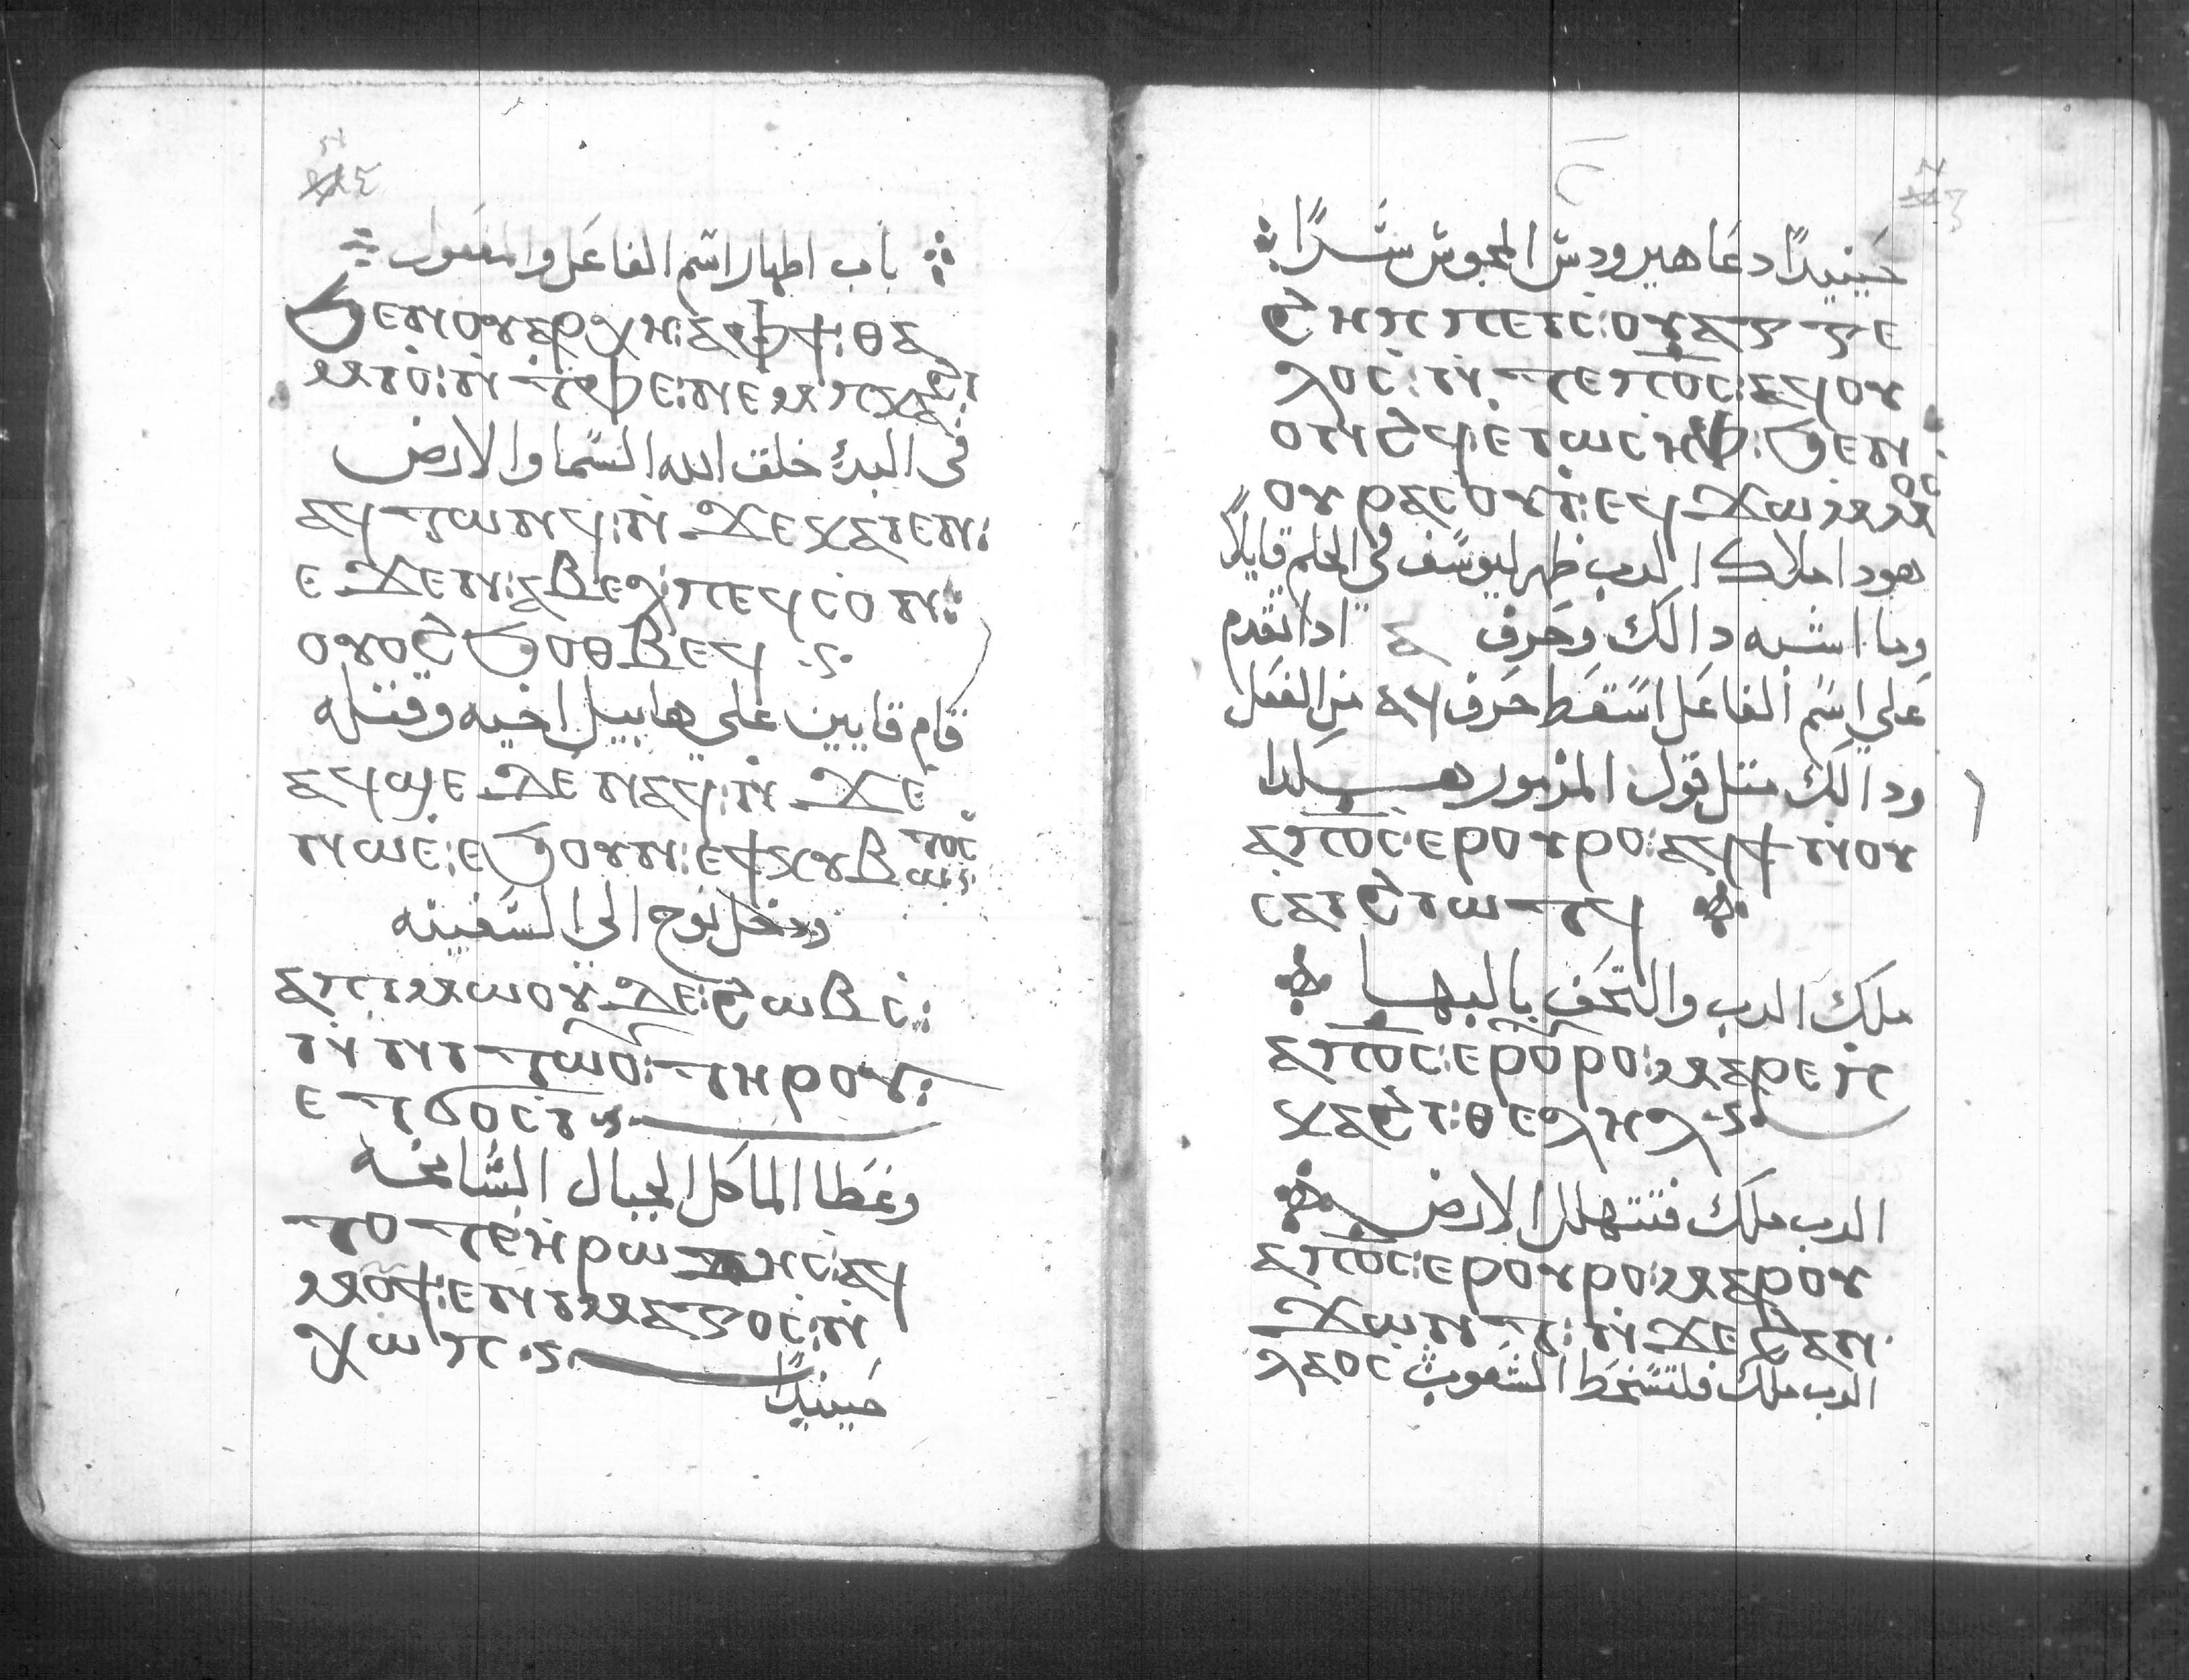 باب اظهار اسم الفاعل والمفعول
ϧⲉⲛⲟⲩⲁⲣⲭⲏ:ⲁⲫϯ:ⲑⲁ
ⲙⲓⲟ:ⲛ̇ⲧⲫⲉ:ⲛⲉⲙⲡⲕⲁϩⲓ:
في البدي خلق الله السما والارض
ⲁϥⲧⲱⲛϥ:ⲛ̇ϫⲉⲕⲁⲓⲉⲛ:
ⲉϫⲉⲛ:ⲁⲃⲉⲗ:ⲡⲉϥⲥⲟⲛ:
ⲟⲩⲟϩϧⲟⲑⲃⲉϥ
قام قايين علي هابيل اخيه وقتله
ⲁϥϣⲉϫⲉⲛⲁϥ:ⲛ̇ϫⲉ
ⲛⲱⲉ:ⲉϧⲟⲩⲛ:ⲉϯⲕⲩⲃⲱⲧⲟⲥ
ودخل نوح الي السفينه
ⲁⲡⲓⲙⲱⲟⲩϫⲉ:ϩⲱⲃⲥ:
ⲛ̇ⲛⲓⲧⲱⲟⲩ:ⲧⲏⲣⲟⲩ:
ⲉⲧϭⲟⲥⲓ
وغطا الما كل الجبال الشامخه
ⲧⲟⲧⲉⲏⲣⲱⲇⲏⲥ:ⲁϥ
ⲙⲟϥϯ:ⲉⲛⲓⲙⲁⲅⲟⲥ:ⲛ̇
ⲭⲱⲡ
حينيدًا
حَينيدًا دعَا هيرودس المجوس سَرًا
ϩⲏⲡⲡⲉⲓⲥ:ⲟⲩⲁⲅⲅⲉ
ⲗⲟⲥ:ⲛ̇ⲧⲉⲡⲟ̅ⲥ̅:ⲁϥⲟⲩ
ⲟⲛϩϥ:ⲉⲓⲱⲥⲏⲫ:ϧⲉⲛ
ⲟⲩⲣⲁⲥⲟⲩⲓ:ⲉϥϫⲱⲙⲙⲟⲥ
هودا ملاك الرب ظهر ليوسف في الحلم قايلاً
وما اشبه دالك وحَرف ⲁ ادا تقدم
عَلي اسم الفاعَل اسَقط حَرف ⲁϥ من الفعَل
ودالك متل قول المزمور هكدا
ⲁⲡⲟ̅ⲥ̅:ⲉⲣⲟⲩⲣⲟ:ⲁϥϯⲛ̇ⲟⲩ
ⲥⲁⲓϩⲓⲱⲧϥ
ملك الرب والتحَف بالبها
ⲁⲡⲟ̅ⲥ̅:ⲉⲣⲟⲩⲣⲟ:ⲙⲁⲣⲉⲡ
ⲕⲁϩⲓ:ⲑⲉⲗⲏⲗ
الرب ملك فتتهلل الارض
ⲁⲡⲟ̅ⲥ̅:ⲉⲣⲟⲩⲣⲟ:ⲙⲁⲣⲟⲩ
ϫⲱⲛⲧ:ⲛ̇ϫⲉϩⲁⲛ
ⲗⲁⲟⲥ الرب ملك فلتسَخط الشَعوب